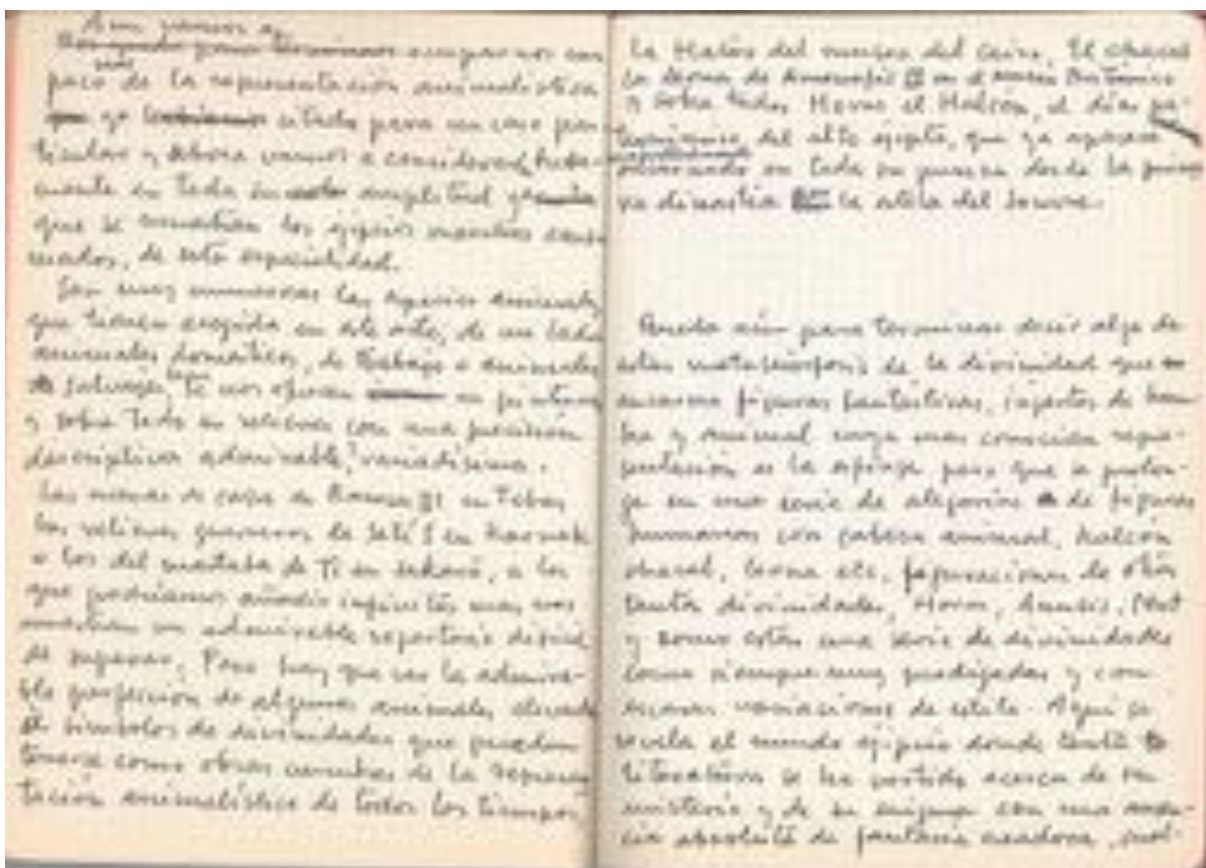 Aun vamos a
ocuparnos un
poco de la representación animalística
ya citada para un caso par-
ticular y ahora vamos a considerar
en toda su amplitud
que se muestran los egipcios maestros consu-
mados, de esta especialidad.
Son muy numerosas las especies animales
que tienen acogida en este arte, de un lado
animales domésticos, de trabajo o animales
salvajes, se nos ofrecen en pinturas
y sobre todo en relieves con una precisión
descriptiva admirable, variadísima.
Las escenas de caza de Ramses III en Tebas
los relieves guerreros de Seti I en Karnak
o los del mastaba de Ti en Sakara, a los
que podríamos añadir infinitos mas, nos
muestran un admirable repertorio difícil
de superar. Pero hay que ver la admira-
ble perfección de algunos animales, elevados
a símbolos de divinidades que pueden
tenerse como obras cumbres de la represen-
tación animalística de todos los tiempos,
la Hator del museo del Cairo, El chacal
la leona de Amenofis III en el museo Británico
y sobre todos Horus el Halcón, el dios
del alto egipto, que ya aparece
en toda su pureza desde la prime-
ra dinastía la estela del Louvre.
Queda aún para terminar decir algo de
estas metamorfosis de la divinidad que
encarna figuras fantásticas, injertos de hom-
bre y animal cuya mas conocida repre-
sentación es la esfinge pero que se prolon-
ga en una serie de alegorías de figuras
humanas con cabeza animal, halcón
chacal, leona etc, figuraciones de otras
tantas divinidades, Horus, Anubis,
y como estos una serie de divinidades
como siempre muy prodigadas y con
escasas variaciones de estilo. Aquí se
revela el mundo egipcio donde tanta
literatura se ha vertido acerca de su
misterio y de su enigma con una ausen-
cia absoluta de fantasía creadora,